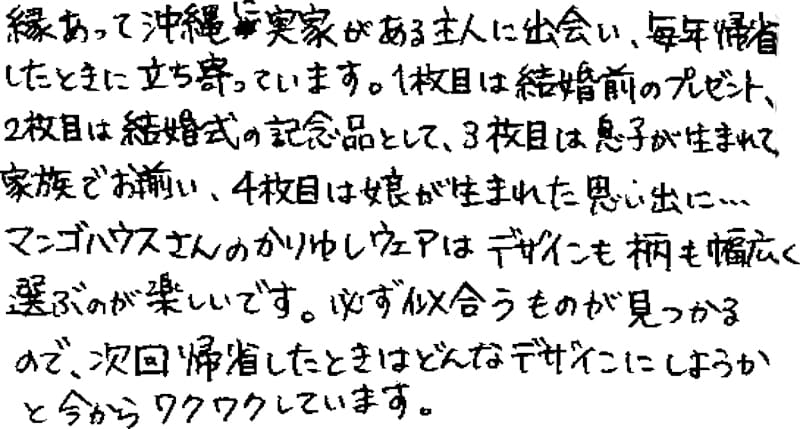 縁あって沖縄に実家がある主人に出会い、毎年帰省
したときに立ち寄っています。1枚目は結婚前のプレゼント、
2枚目は結婚式の記念品として、3枚目は息子が生まれて、
家族でお揃い、4枚目は娘が生まれた思い出に…
マンゴハウスさんのかりゆしウェアはデザインも柄も幅広く
選ぶのが楽しいです。必ず似合うものが見つかる
ので、次回帰省したときはどんなデザインにしようか
と今からワクワクしています。